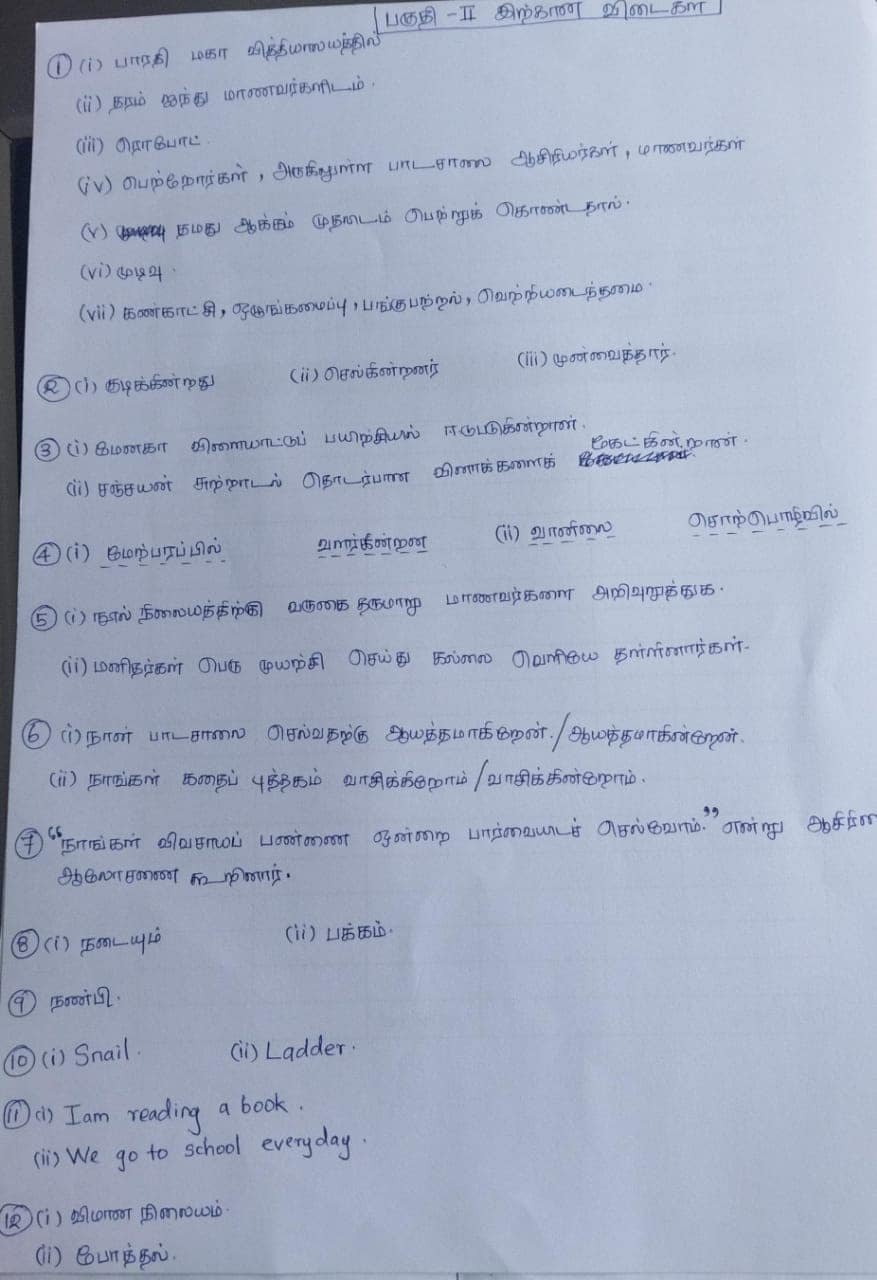 பகுதி - II இற்கான விடைகள்
① (i) பாரதி மகா வித்தியாலயத்தில்
(ii) தரம் ஐந்து மாணவர்களிடம்.
(iii) ரொபோட்.
(iv) பெற்றோர்கள், அருகிலுள்ள பாடசாலை ஆசிரியர்கள், மாணவர்கள்
(v) நமது ஆக்கம் முதலிடம் பெற்றுக் கொண்டதால்.
(vi) முடிவு.
(vii) கண்காட்சி, ஒழுங்கமைப்பு, பங்குபற்றல், வெற்றியடைந்தமை.
② (i) குடிக்கின்றது (ii) செல்கின்றனர் (iii) முன்வைத்தார்.
③ (i) மேனகா விளையாட்டுப் பயிற்சியில் ஈடுபடுகின்றாள்.
(ii) சஞ்சயன் சுற்றாடல் தொடர்பான வினாக்களைக் கேட்கின்றான்.
④ (i) மேற்பரப்பில் வார்கின்றன (ii) வானிலை சொற்பொழிவில்
⑤ (i) நூல் நிலையத்திற்கு வருகை தருமாறு மாணவர்களை அறிவுறுத்துக.
(ii) மனிதர்கள் பெரு முயற்சி செய்து கல்லை வெளியே தள்ளினார்கள்.
⑥ (i) நான் பாடசாலை செல்வதற்கு ஆயத்தமாகிறேன்./ஆயத்தமாகின்றேன்.
(ii) நாங்கள் கதைப் புத்தகம் வாசிக்கிறோம்/வாசிக்கின்றோம்.
⑦ "நாங்கள் விவசாயப் பண்ணை ஒன்றை பார்வையிடச் செல்வோம்." என்று
ஆலோசனை கூறினார்.
⑧ (i) நடையும் (ii) பக்கம்.
⑨ நண்பி.
⑩ (i) Snail. (ii) Ladder.
⑪ (i) I am reading a book.
(ii) We go to school everyday.
⑫ (i) விமான நிலையம்.
(ii) போத்தல்.